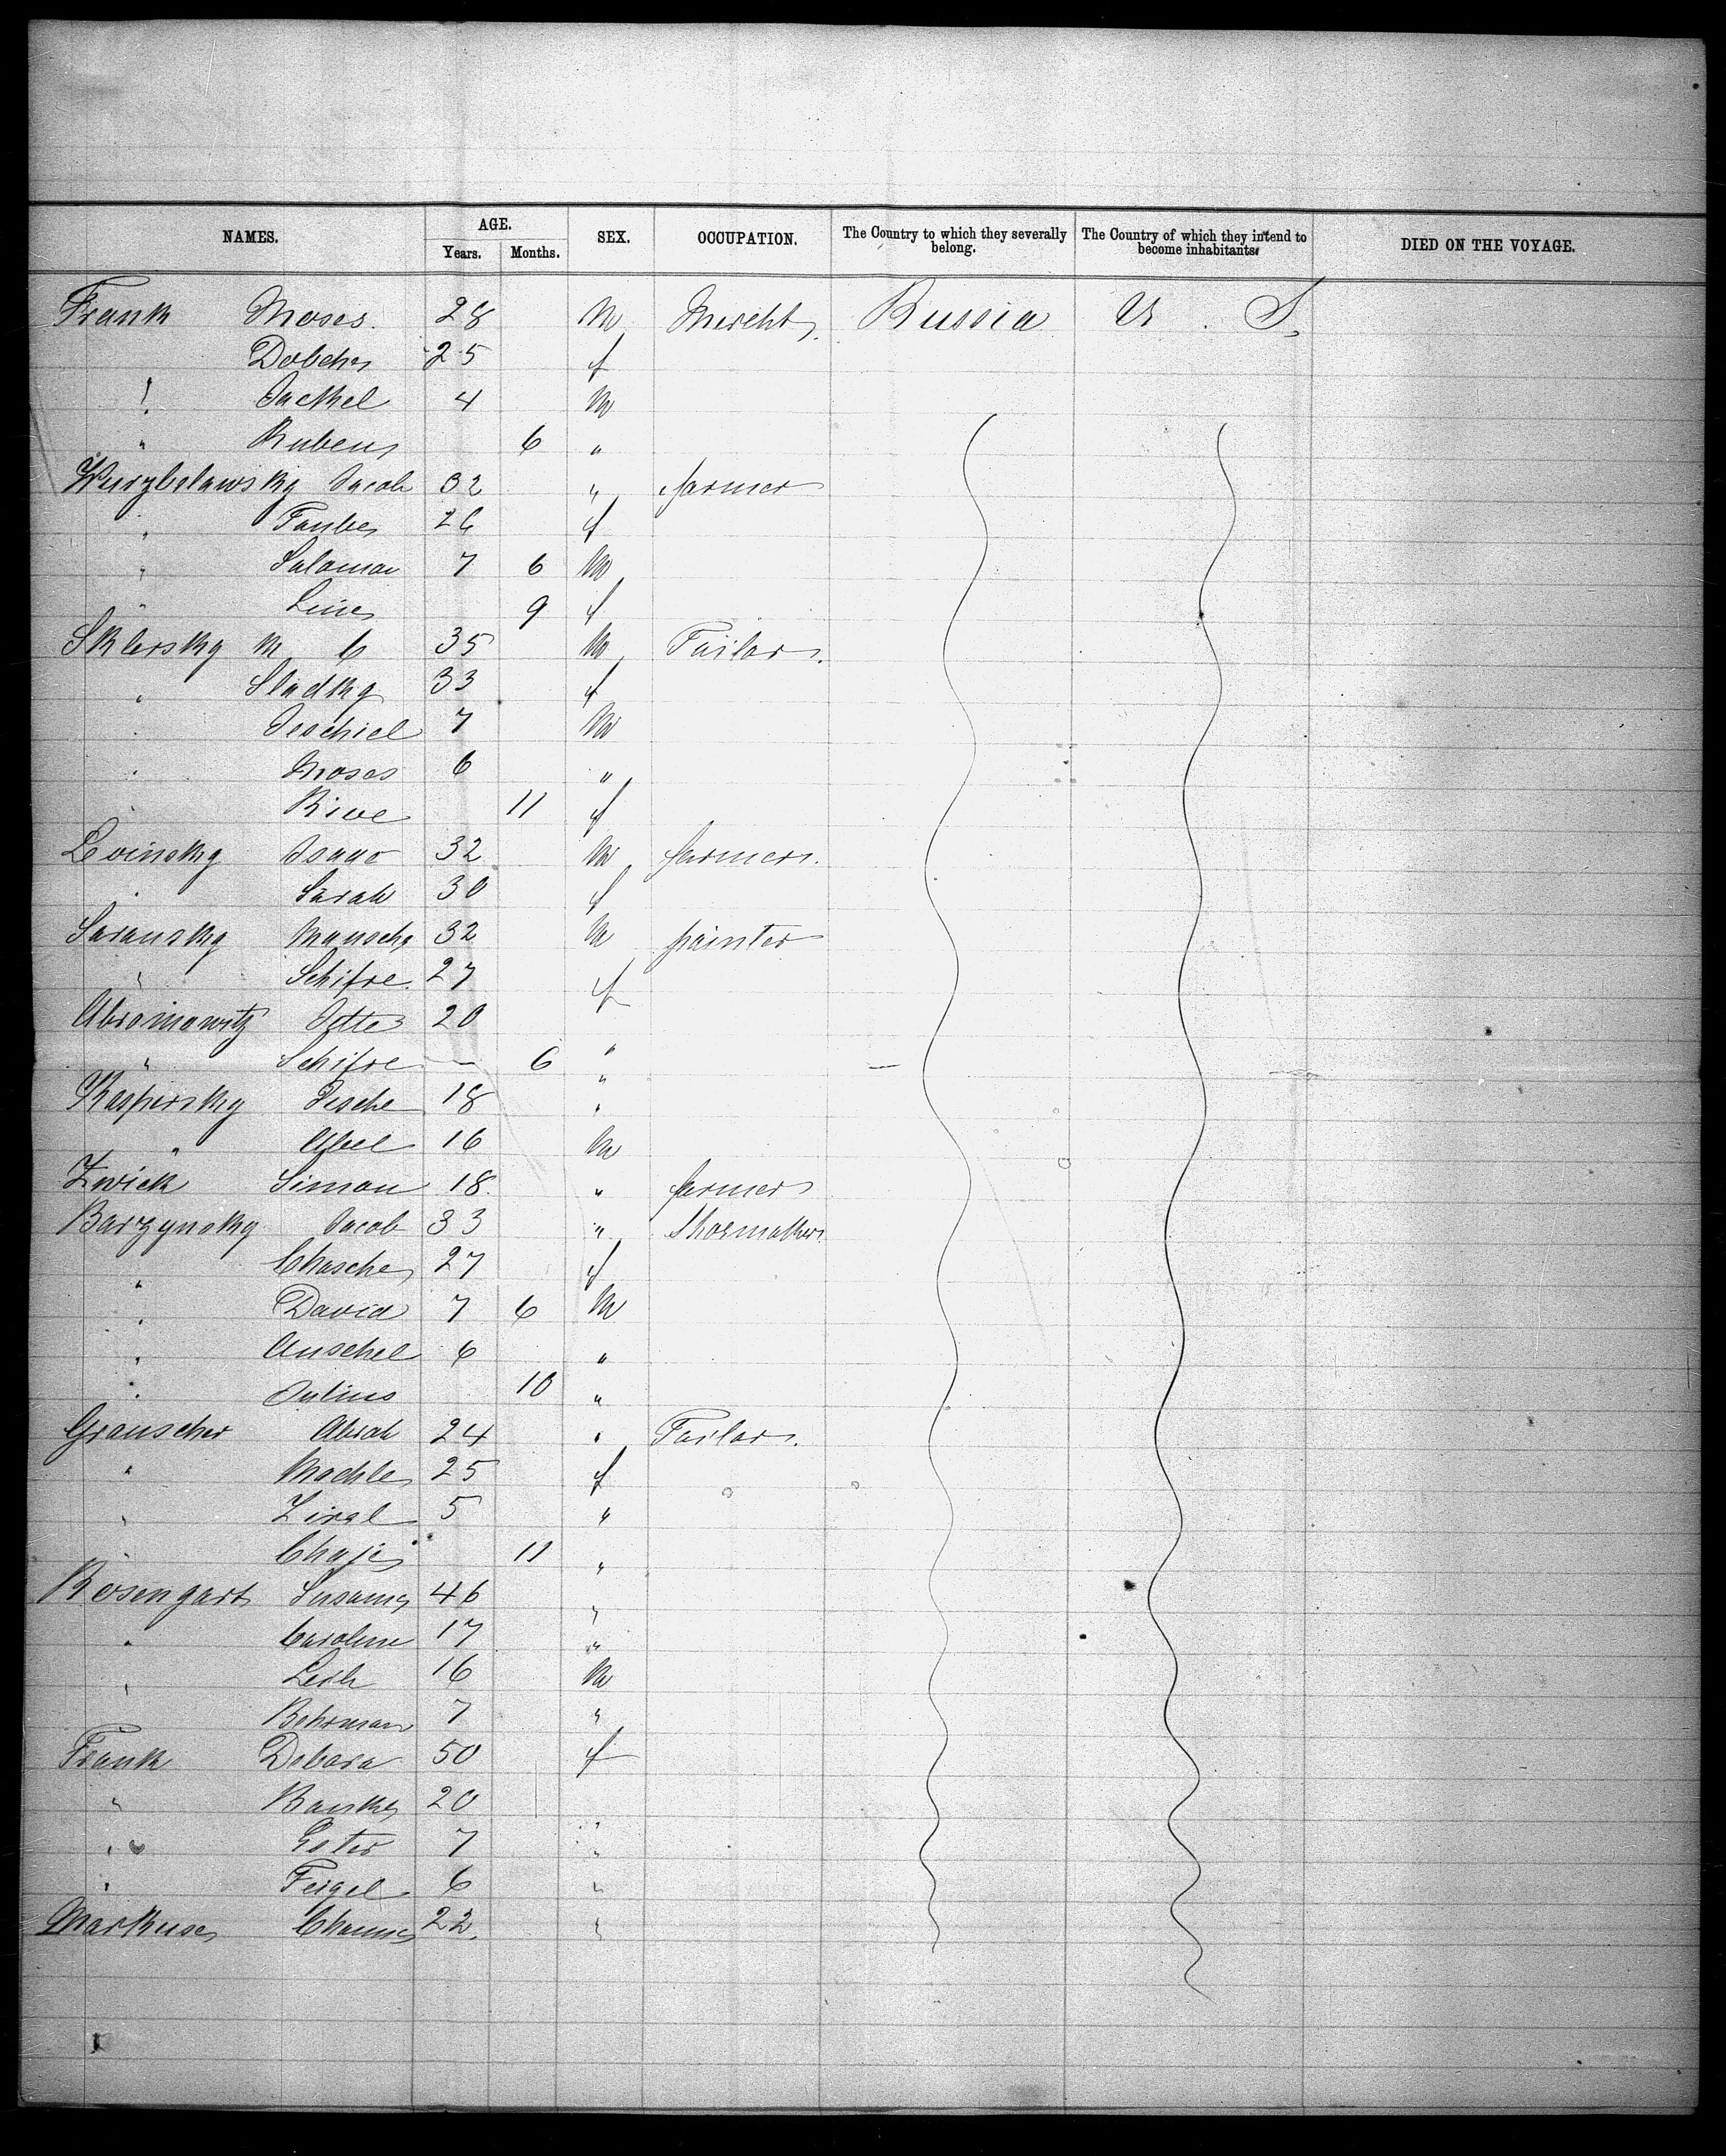 NAMES. AGE. SEX. OCCUPATION. The Country to which they severally belong. The Country of which they intend to become inhabitants. DIED ON THE VOYAGE.
Years. Months.
Frank Moses. 28 M Mercht. Russia U. S.
25 f
! Jackel 4 M
" Ruben 6 "
Jacob 32 " farmer
" Taube 26 f
" Saloman 7 6 M
" Line 9 f
Sklersky M 35 M Tailor.
" Sladky 33 f
" Jeschiel 7 M
" Moses 6 "
" Rive 11 f
Levinsky Isaac 32 M farmer.
" Sarah 30 f
Saransky Mausche 32 M painter
" Schifre. 27 f
Abromowitz Itte 20
" Schifre — 6 "
Kaspersky Jesche 18 "
" Abel 16 M
Zwick Simon 18. " farmer
Barzynsky Jacob 33 " Shoemaker.
" Chasche 27 f
" David 7 6 M
" Anschel 6 "
" Julius 10 "
Grauscher Abrah 24 " Tailor.
" Machle 25 f
" Zirel 5 "
" Chaje 11 "
Rosengart Susanne 46 "
" Caroline 17 "
" Leib 16 M
" Behrman 7 "
Frank Debora 50 f
" 20
" Ester 7 "
" Feigel 6 "
Markuse Channe 22. "